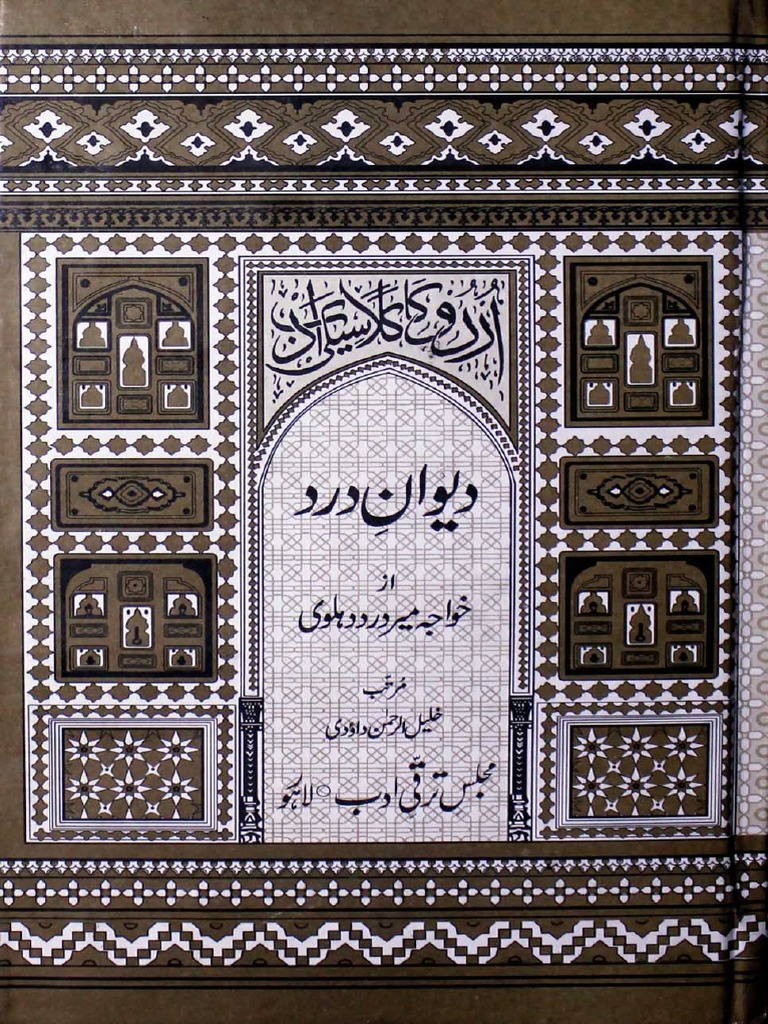 اُردو کا کلاسیکی ادب
دیوانِ درد
از
خواجہ میر درد دہلوی
مرتبہ
خلیل الرحمٰن داؤدی
مجلسِ ترقّی ادب ○ لاہور